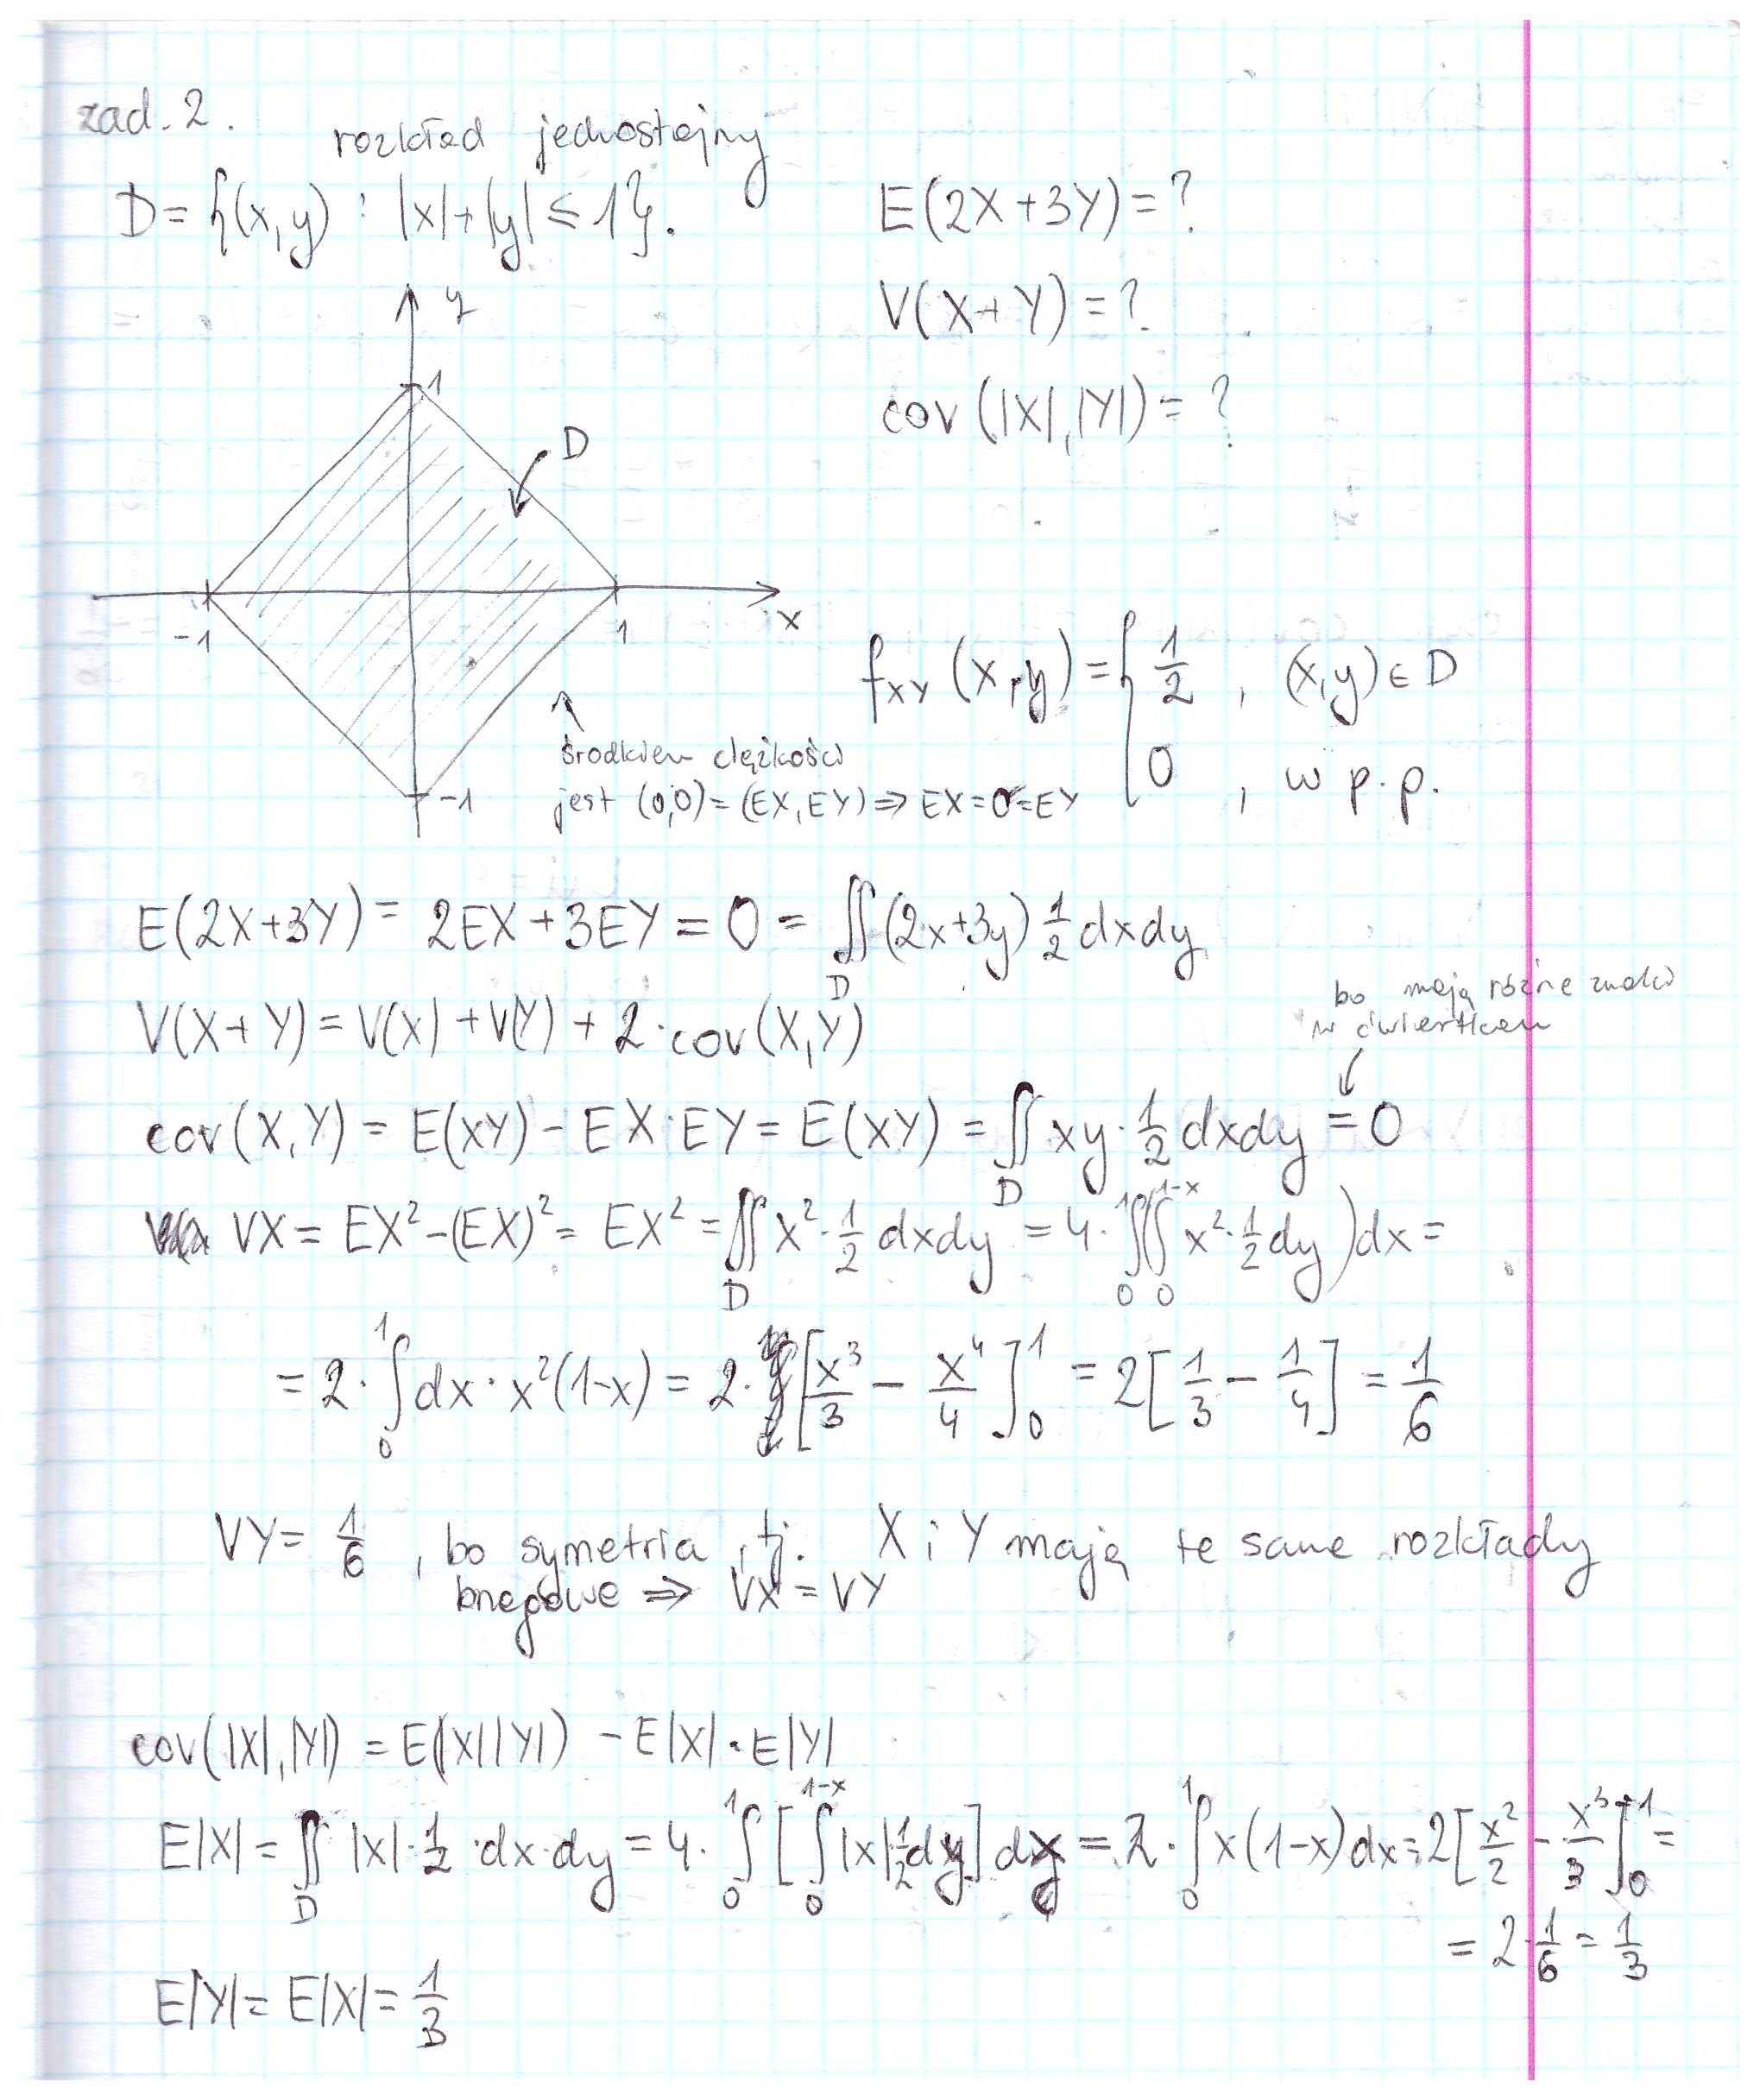 zad. 2.
rozkład jednostajny
D = {(x,y) : |x|+|y| ≤ 1}.
E(2X+3Y) = ?
V(X+Y) = ?
cov(|X|,|Y|) = ?
y
1
D
-1
1
x
-1
środkiem ciężkości
jest (0,0) = (EX,EY) ⇒ EX=0=EY
f_XY(x,y) = { 1/2 , (x,y) ∈ D
0 , w p.p.
E(2X+3Y) = 2EX+3EY = 0 = ∬_D (2x+3y) 1/2 dxdy
V(X+Y) = V(X)+V(Y) + 2·cov(X,Y)
bo mają różne znaki
w ćwiartkach
cov(X,Y) = E(XY) - EX·EY = E(XY) = ∬_D xy·1/2 dxdy = 0
VX = EX² - (EX)² = EX² = ∬_D x²·1/2 dxdy = 4·∫_0^1 (∫_0^{1-x} x²·1/2 dy) dx =
= 2·∫_0^1 dx·x²(1-x) = 2·[x³/3 - x⁴/4]_0^1 = 2[1/3 - 1/4] = 1/6
VY = 1/6 , bo symetria, tj. X i Y mają te same rozkłady
brzegowe ⇒ VX = VY
cov(|X|,|Y|) = E(|X||Y|) - E|X|·E|Y|
E|X| = ∬_D |x|·1/2·dx·dy = 4·∫_0^1 [∫_0^{1-x} |x| 1/2 dy] dx = 2·∫_0^1 x(1-x)dx = 2[x²/2 - x³/3]_0^1 =
= 2·1/6 = 1/3
E|Y| = E|X| = 1/3